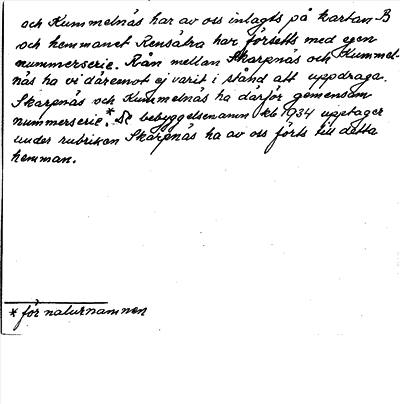 och Kummelnäs har av oss inlagts på kartan B
och hemmanet Rensätra har försetts med egen
nummerserie. Rån mellan Skarpnäs och Kummel-
näs ha vi däremot ej varit i stånd att uppdraga.
Skarpnäs och Kummelnäs ha därför gemensam
nummerserie.* De bebyggelsenamn kb 1934 upptager
under rubriken Skarpnäs ha av oss förts till detta
hemman.
* för naturnamnen